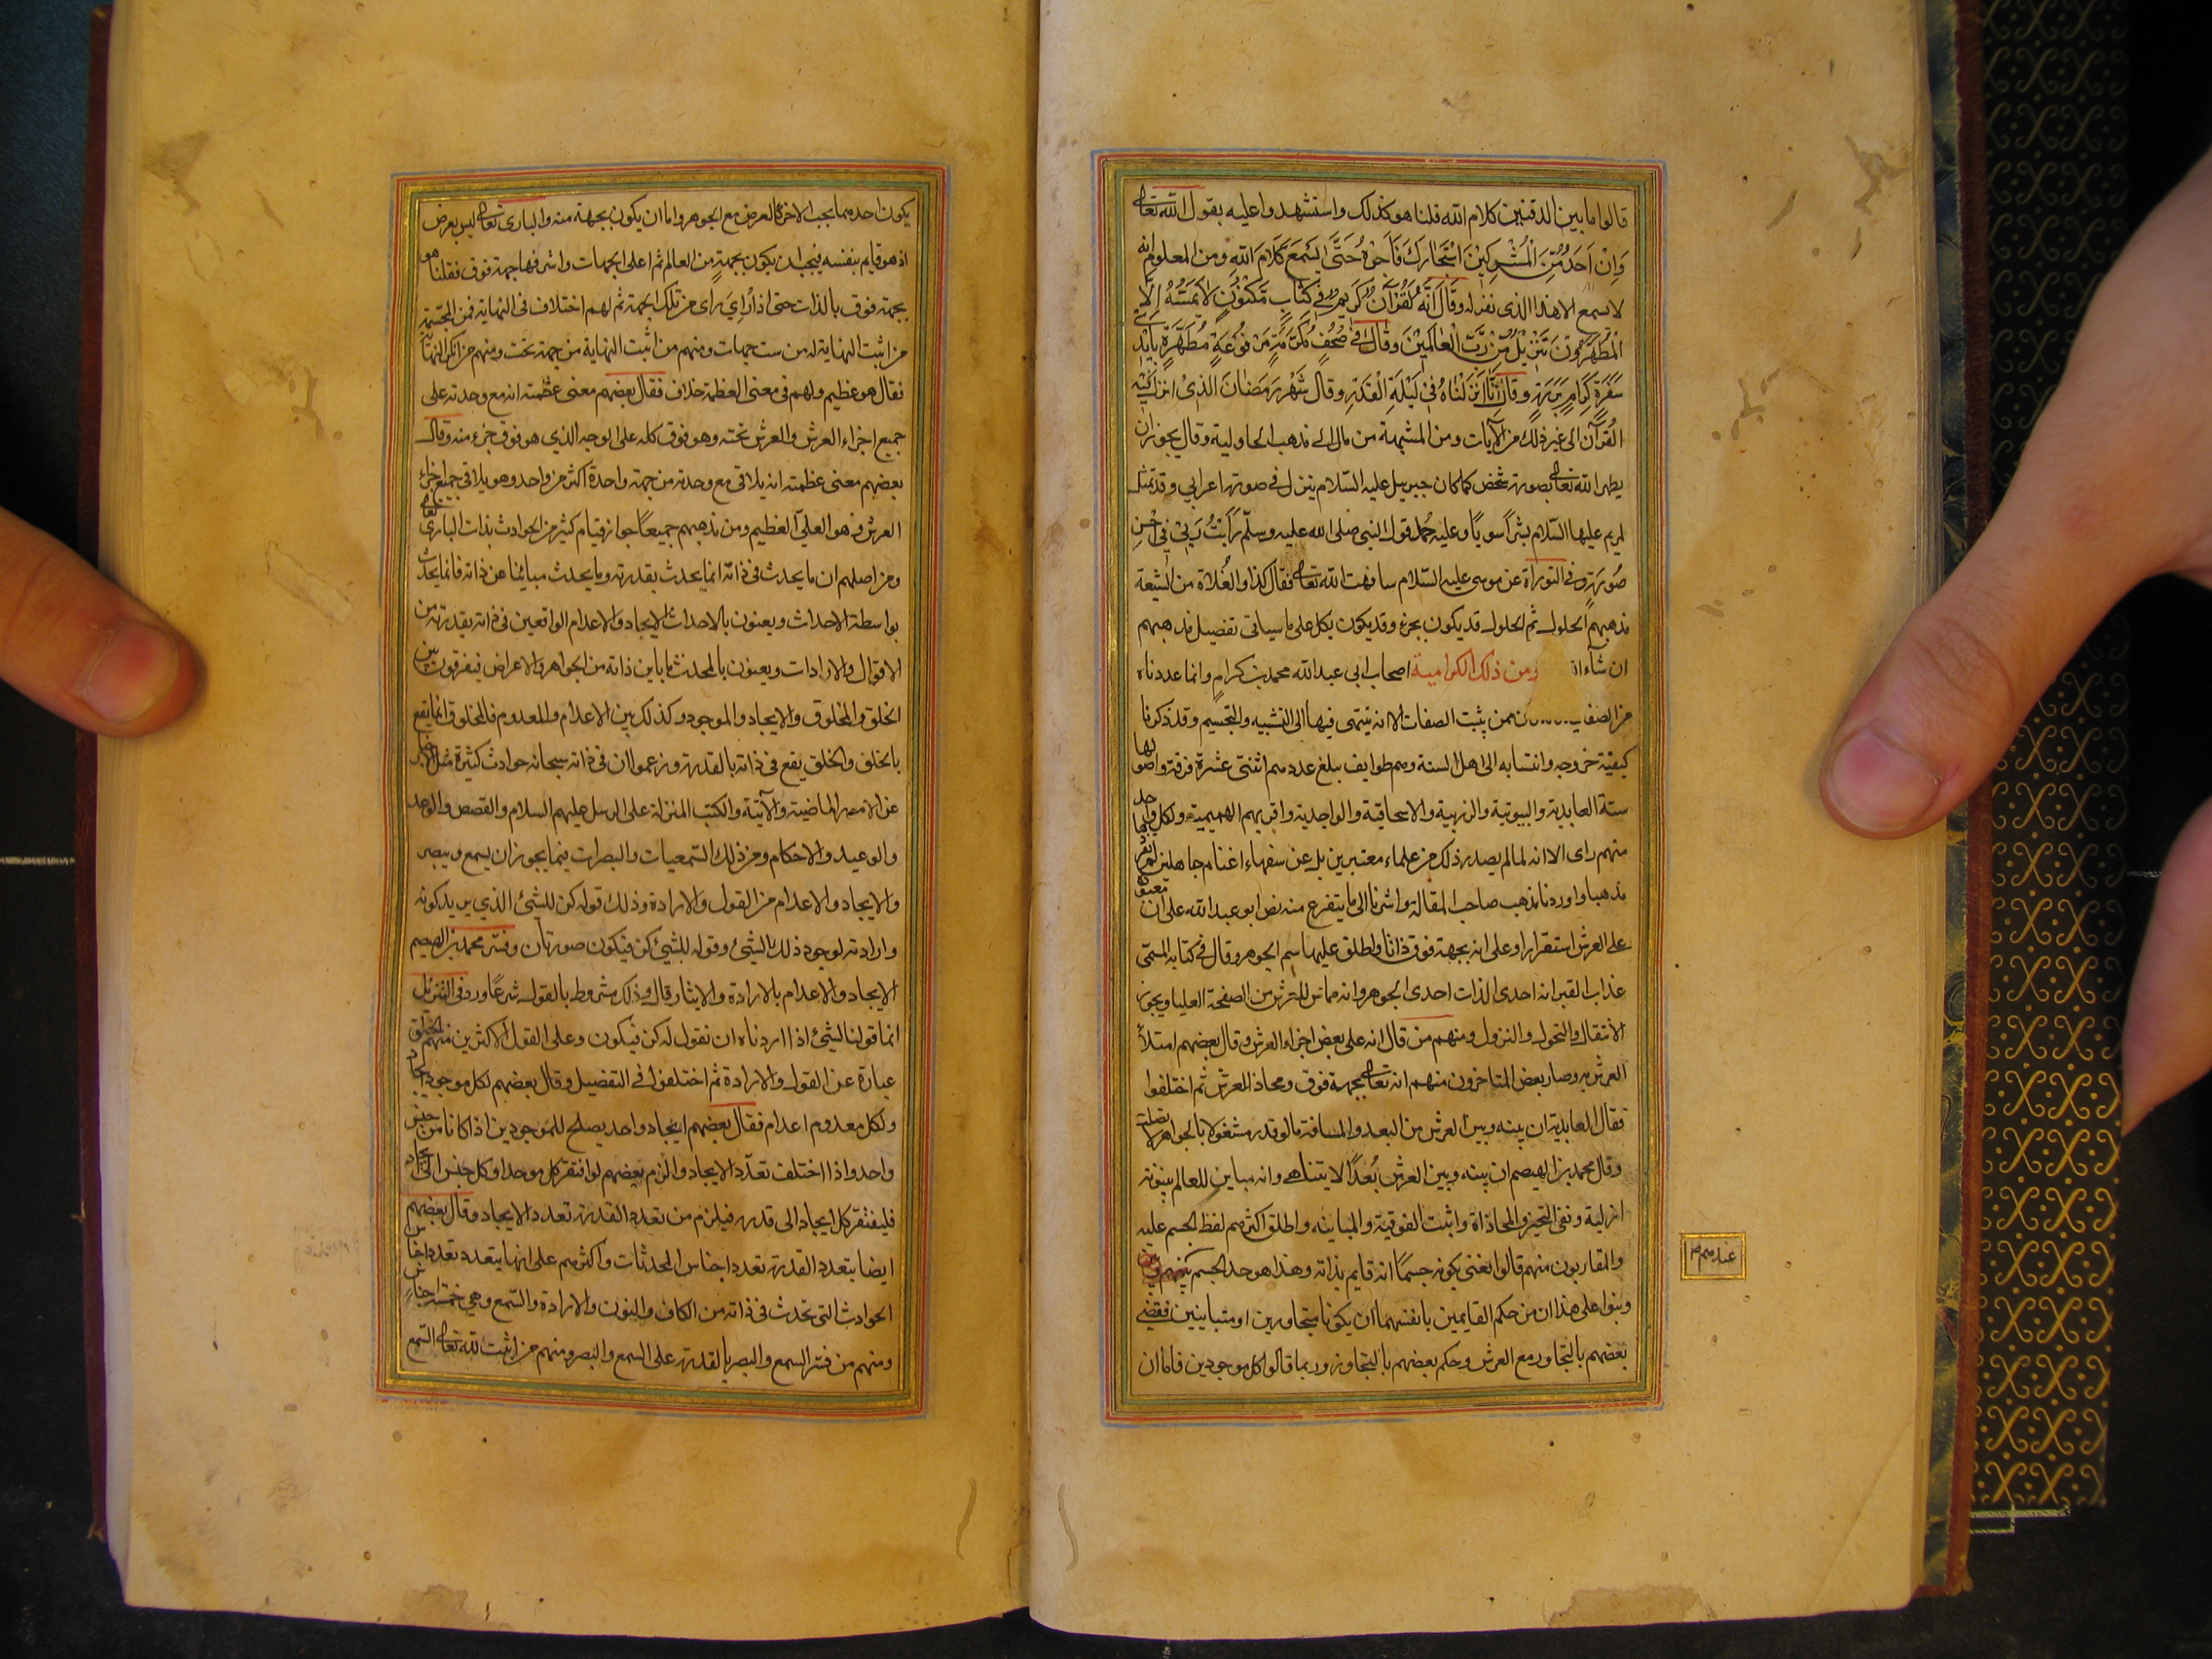 قالوا ما بين الدفتين كلام الله قلنا هو كذلك واستشهدوا عليه بقول الله تعالى
وَاِنْ اَحَدٌ مِّنَ الْمُشْرِكِينَ اسْتَجَارَكَ فَاَجِرْهُ حَتَّى يَسْمَعَ كَلَامَ اللهِ ومن المعلوم انه
لا يسمع الا هذا الذى نقرؤه وقَالَ اِنَّهُ لَقُرْآنٌ كَرِيمٌ فِي كِتَابٍ مَّكْنُونٍ لَا يَمَسُّهُ اِلَّا
الْمُطَهَّرُونَ تَنْزِيلٌ مِّنْ رَّبِّ الْعَالَمِينَ وَقَالَ فِي صُحُفٍ مُكَرَّمَةٍ مَرْفُوعَةٍ مُطَهَّرَةٍ بِاَيْدِي
سَفَرَةٍ كِرَامٍ بَرَرَةٍ وقال اِنَّا اَنْزَلْنَاهُ فِي لَيْلَةِ الْقَدْرِ وقال شَهْرُ رَمَضَانَ الَّذِيْ اُنْزِلَ فِيْهِ
الْقُرْآنُ الى غير ذلك من الآيات ومن المشبهة من مال الى مذهب الحلولية وقال يجوز ان
يظهر الله تعالى بصورة شخص كما كان جبريل عليه السلام ينزل في صورة اعرابي وقد تمثل
لمريم عليها السلام بشرًا سويًا وعليه حمل قول النبي صلى الله عليه وسلم رَأَيْتُ رَبِّيْ فِي اَحْسَنِ
صُورَةٍ وفي التوراة عن موسى عليه السلام شافهت الله تعالى فقال كذا والغلاة من الشيعة
مذهبهم الحلول ثم الحلول قد يكون بجزء وقد يكون بكل على ما سياتى تفصيل مذهبهم
ان شاء ومن ذلك الكرامية اصحاب ابى عبد الله محمد بن كرام وانما عددناه
من ممن يثبت الصفات الا انه ينتهى فيها الى التشبيه والتجسيم وقد ذكرنا
كيفية خروجه وانتسابه الى اهل السنة وهم طوايف يبلغ عددهم اثنتى عشرة فرقة واصولها
ستة العابدية والنونية والزرينية والاسحاقية والواحدية واقربهم الهيصمية ولكل واحد
منهم راى الا انه لما لم يصدر ذلك من علماء معتبرين بل عن سفهاء اغتام جاهلين لم نفردها
مذهبا واوردنا مذهب صاحب المقالة واشرنا الى ما يتفرع منه نص ابو عبد الله على ان معبوده
على العرش استقرارا وعلى انه بجهة فوق ذاتا واطلق عليها اسم الجوهر وقال في كتابه المسمى
عذاب القبر انه احدى الذات احدى الجوهر وانه مماس للعرش من الصفحة العليا ويجوز
الانتقال والتحول والنزول ومنهم من قال انه على بعض اجزاء العرش وقال بعضهم امتلأ
العرش به وصار بعض المتاخرون منهم انه تعالى بجهة فوق ومحاذ للعرش ثم اختلفوا
فقال العابدية ان بينه وبين العرش من البعد والمسافة ما لو قدر مشغولا بالجواهر لا تصلت به
وقال محمد بن الهيصم ان بينه وبين العرش بُعْدًا لا يتناهى وانه مباين للعالم بينونة
ازلية ونفى التحيز والمحاذاة واثبت الفوقية والمباينة واطلق اكثرهم لفظ الجسم عليه
والمقاربون منهم قالوا نعنى بكونه جسمًا انه قايم بذاته وهذا هو حد الجسم
عندهم
وبنوا على هذا ان من حكم القايمين بانفسهما ان يكونا متجاورين او متباينين فقضى
بعضهم بالتجاور مع العرش وحكم بعضهم بالتجاوز وربما قالوا كل موجودين فاما ان
يكون احدهما بحيث الاخر كالعرض مع الجوهر واما ان يكون بجهة منه والبارى تعالى ليس بعرض
اذ هو قايم بنفسه فيجب ان يكون بجهة من العالم ثم اعلى الجهات واشرفها جهة فوق فقلنا هو
بجهة فوق بالذات حتى اذا رُاِيَ رأى من تلك الجهة ثم لهم اختلاف في النهاية فمن المجسمة
من اثبت النهاية له من ست جهات ومنهم من اثبت النهاية من جهة تحت ومنهم من انكر النهاية
فقال هو عظيم ولهم في معنى العظمة خلاف فقال بعضهم معنى عظمته انه مع وحدته على
جميع اجزاء العرش والعرش تحته وهو فوق كله على الوجه الذي هو فوق جزء منه وقال
بعضهم معنى عظمته انه يلاقى مع وحدته من جهة واحدة اكثر من واحد وهو يلاقى جميع اجزاء
العرش وهو العليّ العظيم ومن مذهبهم جميعًا جواز قيام كثير من الحوادث بذات البارى تعالى
ومن اصلهم ان ما يحدث في ذاته انما يحدث بقدرته وما يحدث مباينًا عن ذاته فانما يحدث
بواسطة الاحداث ويعنون بالاحداث الايجاد والاعدام الواقعين في ذاته بقدرته من
الاقوال والارادات ويعنون بالمحدث ما باين ذاته من الجواهر والاعراض فيفرقون بين
الخلق والمخلوق والايجاد والموجود وكذلك بين الاعدام والمعدوم فالمخلوق انما يقع
بالخلق والخلق يقع في ذاته بالقدرة وزعموا ان في ذاته سبحانه حوادث كثيرة مثل الاخبار
عن الامور الماضية والآتية والكتب المنزلة على الرسل عليهم السلام والقصص والوعد
والوعيد والاحكام ومن ذلك التسمعيات والبصرات فيما يجوز ان يسمع ويبصر
والايجاد والاعدام من القول والارادة وذلك قوله كن للشئ الذي يريد كونه
وارادته لوجود ذلك الشئ وقوله للشئ كن فيكون صورتان وفسّر محمد بن الهيصم
الايجاد والاعدام بالارادة والايثار قال وذلك مشروط بالقول شرعًا ورد في التنزيل
انما قولنا لشئ اذا اردناه ان نقول له كن فيكون وعلى القول الاكثرين منهم الخلق
عبارة عن القول والارادة ثم اختلفوا في التفصيل وقال بعضهم لكل موجود ايجاد
ولكل معدوم اعدام فقال بعضهم ايجاد واحد يصلح للموجودين اذا كانا من جنس
واحد واذا اختلف تعدّد الايجاد والزم بعضهم لو افتقر كل موحد او كل جنس الى ايجاد
فليفتقر كل ايجاد الى قدرة فيلزم من تعدد القدرة تعدد الايجاد وقال بعضهم
ايضا بتعدد القدرة تعدد اجناس المحدثات واكثرهم على انها يتعدد بتعدد اجناس
الحوادث التى تحدث في ذاته من الكاف والنون والارادة والسّمع وهي خمسة اجناس
ومنهم من فسّر السمع والبصر بالقدرة على السمع والبصر ومنهم من اثبت لله تعالى السمع